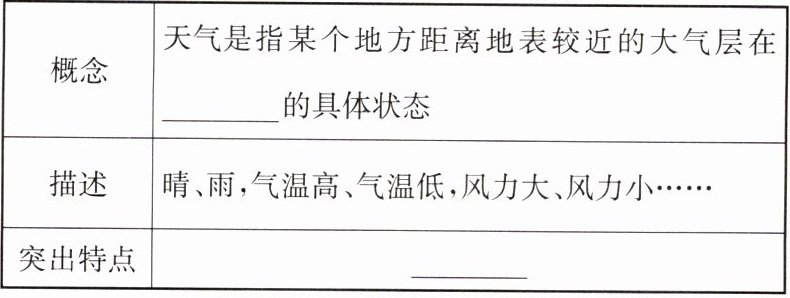 概念
天气是指某个地方距离地表较近的大气层在
________的具体状态
描述
晴、雨,气温高、气温低,风力大、风力小……
突出特点
________